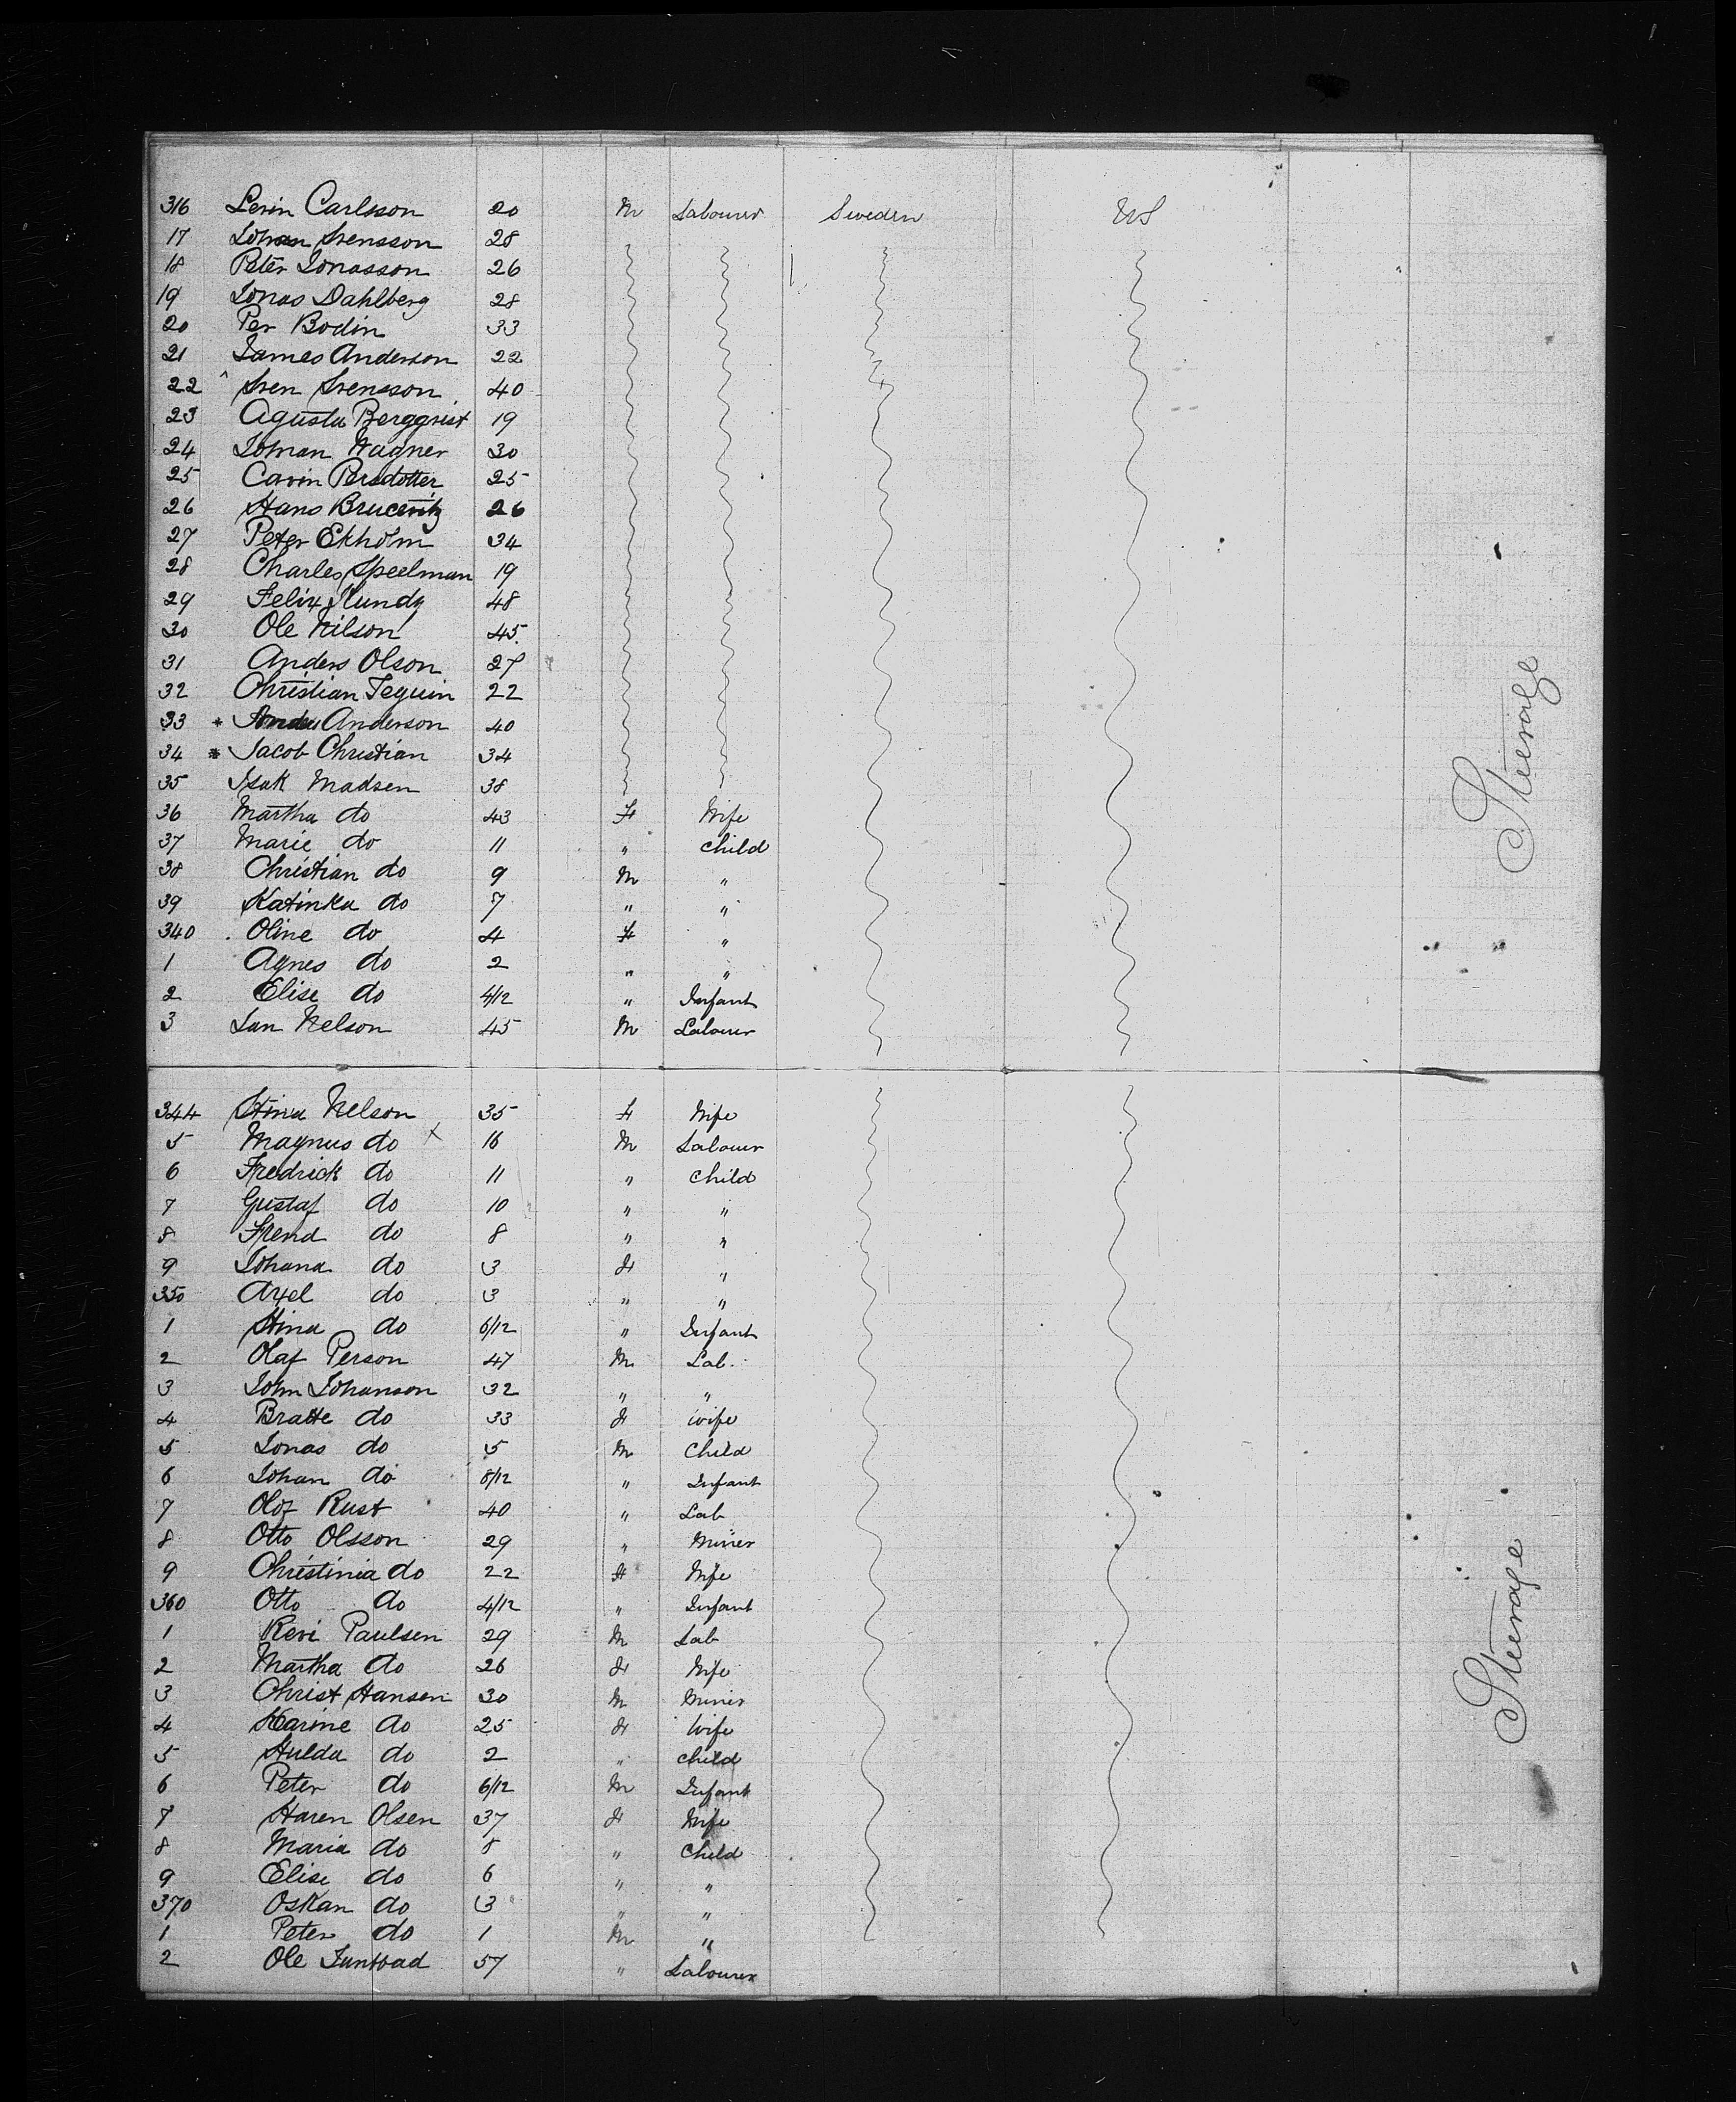 316 Levin Carlsson 20 M Labourer Sweden US
17 Johan Svensson 28
18 Peter Jonasson 26
19 Jonas Dahlberg 28
20 Per Bodin 33
21 James Anderson 22
22 Sven Svensson 40
23 Agusta Bergqvist 19
24 Johan Wagner 30
25 Carin Persdotter 25
26 Hans 26
27 Peter Ekholm 34
28 Charles Speelman 19
29 Felix 48
30 Ole Nilson 45
31 Anders Olson 27
32 Christian Jequin 22
33 * Anderson 40
34 * Jacob Christian 34
35 Isak Madsen 38
36 Martha do 43 F Wife
37 Marie do 11 " Child
38 Christian do 9 M "
39 Katinka do 7 " "
340 Oline do 4 F "
1 Agnes do 2 " "
2 Elise do 4/12 " Infant
3 Jan Nelson 45 M Labour
Steerage
344 Stina Nelson 35 F Wife
5 Magnus do x 16 M Labour
6 Fredrick do 11 " Child
7 Gustaf do 10 " "
8 Frend do 8 " "
9 Johana do 3 F "
350 Axel do 3 " "
1 Stina do 6/12 " Infant
2 Olaf Person 47 M Lab.
3 John Johanson 32 " "
4 Bratte do 33 F Wife
5 Jonas do 5 M Child
6 Johan do 8/12 " Infant
7 Olof Rust 40 " Lab
8 Otto Olsson 29 " Miner
9 Christinia do 22 F Wife
360 Otto do 4/12 " Infant
1 Revi Paulsen 29 M Lab
2 Martha do 26 F Wife
3 Christ Hansen 30 M Miner
4 Karine do 25 F Wife
5 Hulda do 2 " Child
6 Peter do 6/12 M Infant
7 Haren Olsen 37 F Wife
8 Maria do 8 " Child
9 Elise do 6 " "
370 Oskan do 3 " "
1 Peter do 1 M "
2 Ole 57 " Labourer
Steerage